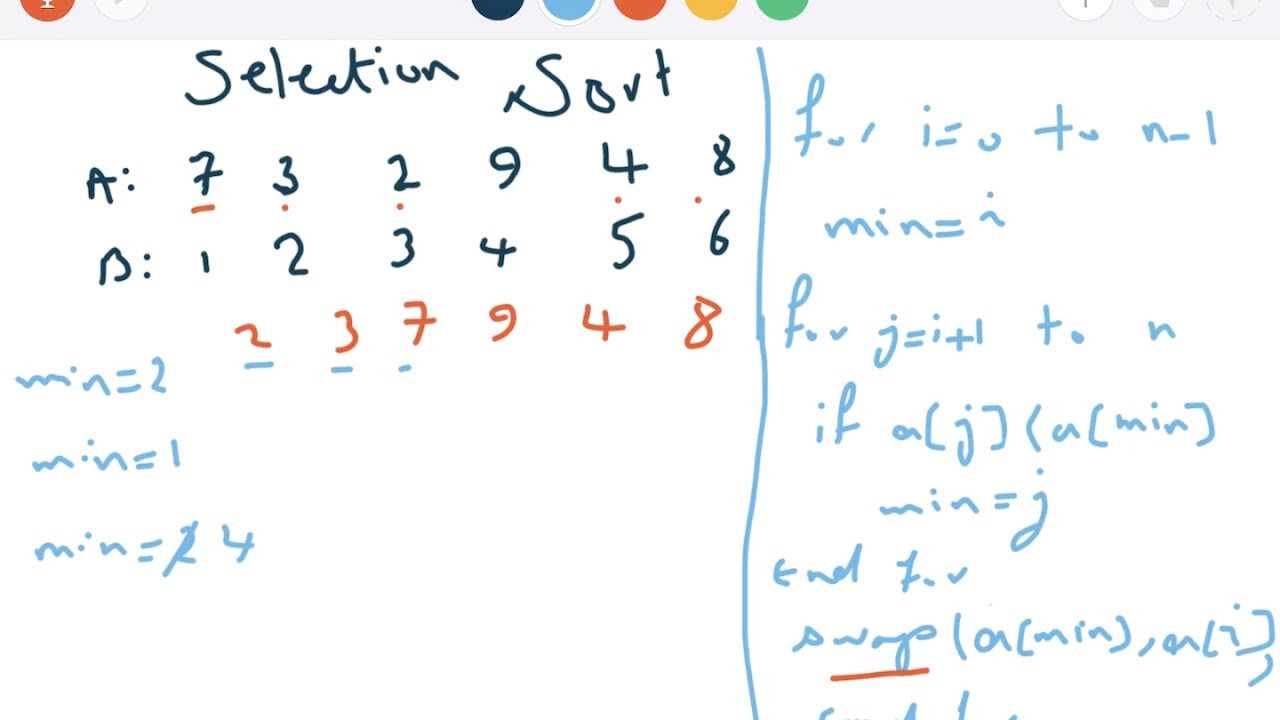 Selection Sort
A: 7 3 2 9 4 8
B: 1 2 3 4 5 6
2 3 7 9 4 8
min=2
min=1
min=2 4
for i=0 to n-1
min=i
for j=i+1 to n
if a[j]<a[min]
min=j
end for
swap(a[min],a[i])